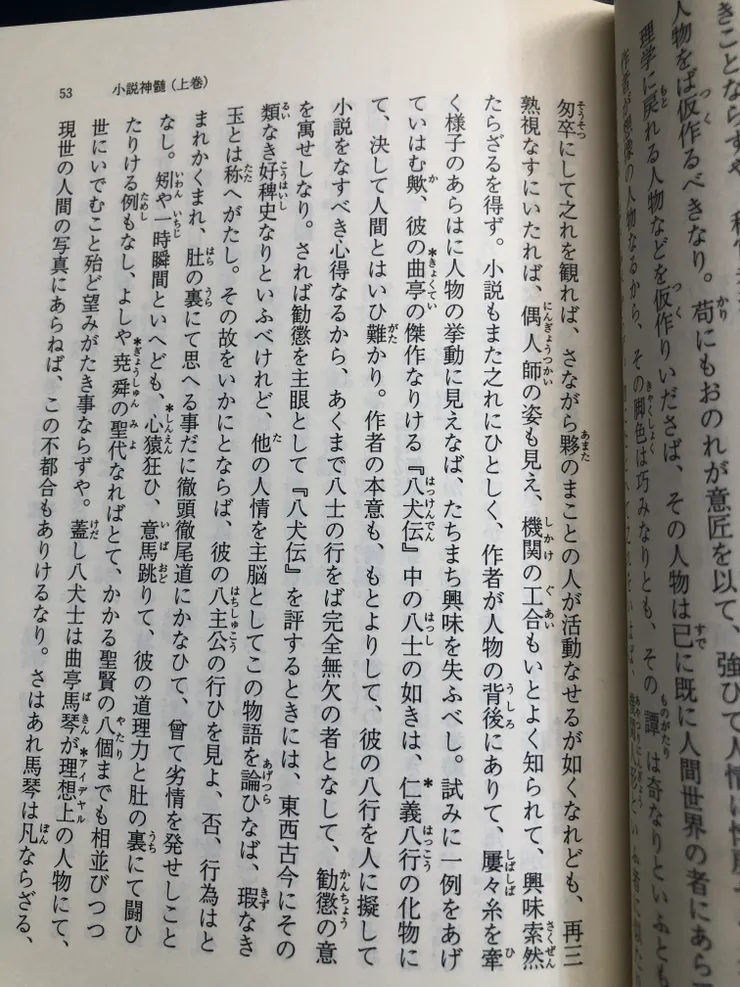 きことならずや、
人物をば仮作るべきなり。苟にもおのれが意匠を以て、強ひて人情に
理学に戻れる人物などを仮作りいださば、その人物は已に既に人間世界の者にあら
作者が想像の人物なるから、その脚色は巧みなりとも、その譚は奇なりといふとも
といふ者に似たり
匆卒にして之れを観れば、さながら夥のまことの人が活動なせるが如くなれども、再三
熟視なすにいたれば、偶人師の姿も見え、機関の工合もいとよく知られて、興味索然
たらざるを得ず。小説もまた之れにひとしく、作者が人物の背後にありて、屢々糸を牽
く様子のあらはに人物の挙動に見えなば、たちまち興味を失ふべし。試みに一例をあげ
ていはむ歟、彼の曲亭の傑作なりける『八犬伝』中の八士の如きは、仁義八行の化物に
て、決して人間とはいひ難かり。作者の本意も、もとよりして、彼の八行を人に擬して
小説をなすべき心得なるから、あくまで八士の行をば完全無欠の者となして、勧懲の意
を寓せしなり。されば勧懲を主眼として『八犬伝』を評するときには、東西古今にその
類なき好稗史なりといふべけれど、他の人情を主脳としてこの物語を論ひなば、瑕なき
玉とは称へがたし。その故をいかにとならば、彼の八主公の行ひを見よ、否、行為はと
まれかくまれ、肚の裏にて思へる事だに徹頭徹尾道にかなひて、曾て劣情を発せしこと
なし。矧や一時瞬間といへども、心猿狂ひ、意馬跳りて、彼の道理力と肚の裏にて闘ひ
たりける例もなし、よしや尭舜の聖代なればとて、かかる聖賢の八個までも相並びつつ
世にいでむこと殆ど望みがたき事ならずや。蓋し八犬士は曲亭馬琴が理想上の人物にて、
現世の人間の写真にあらねば、この不都合もありけるなり。さはあれ馬琴は凡ならざる、
小説神髄（上巻）
53